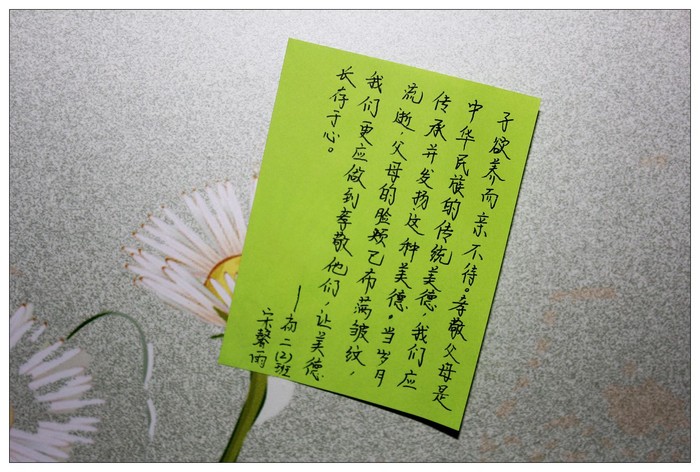 子欲养而亲不待。孝敬父母是
中华民族的传统美德，我们应
传承并发扬这种美德。当岁月
流逝，父母的脸颊已布满皱纹，
我们更应做到孝敬他们，让美德
长存于心。
——高二(2)班
宋馨雨